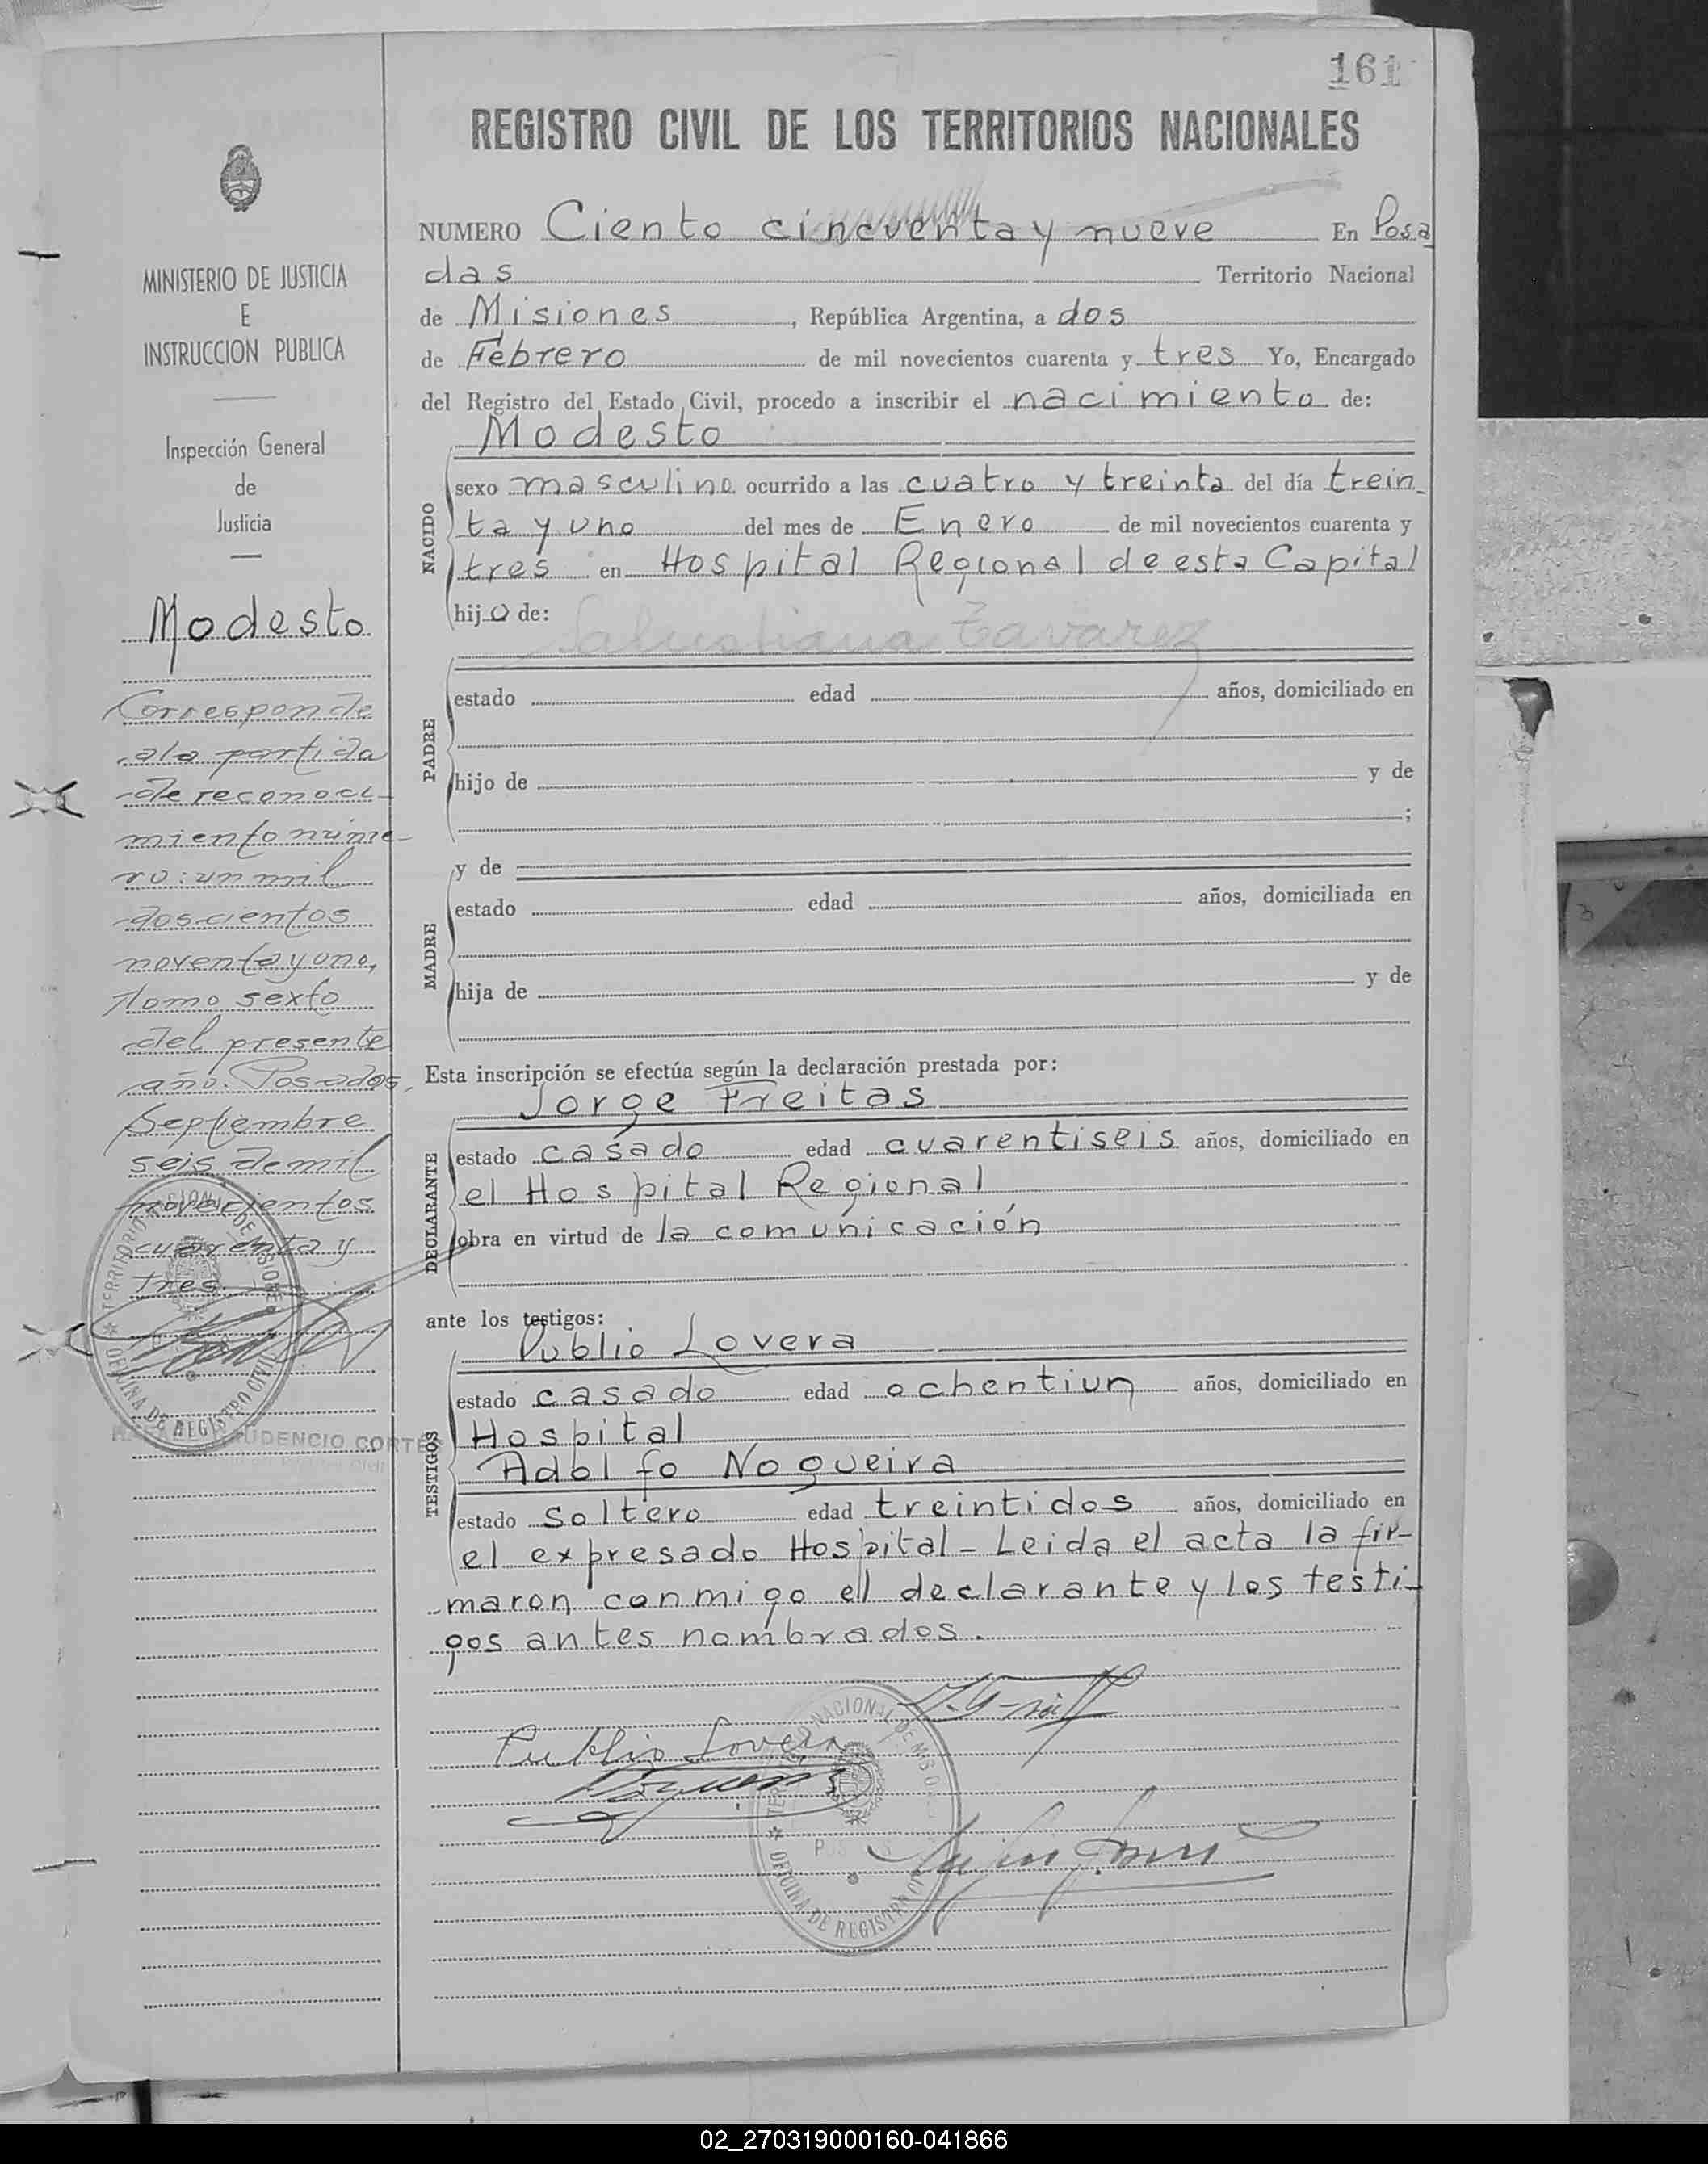 161
REGISTRO CIVIL DE LOS TERRITORIOS NACIONALES
NUMERO Ciento cincuenta y nueve En Posa
das Territorio Nacional
de Misiones, República Argentina, a dos
de Febrero de mil novecientos cuarenta y tres Yo, Encargado
del Registro del Estado Civil, procedo a inscribir el nacimiento de:
Modesto
NACIDO
sexo masculino ocurrido a las cuatro y treinta del día trein
ta y uno del mes de Enero de mil novecientos cuarenta y
tres en Hospital Regional de esta Capital
hijo de:
Salustiana Tavarez
PADRE
estado edad años, domiciliado en
hijo de y de
;
MADRE
y de
estado edad años, domiciliada en
hija de y de
Esta inscripción se efectúa según la declaración prestada por:
Jorge Freitas
DECLARANTE
estado casado edad cuarentiseis años, domiciliado en
el Hospital Regional
obra en virtud de la comunicación
ante los testigos:
Publio Lovera
TESTIGOS
estado casado edad ochentiun años, domiciliado en
Hospital
Adolfo Nogueira
estado soltero edad treintidos años, domiciliado en
el expresado Hospital - Leida el acta la fir-
maron conmigo el declarante y los testi-
gos antes nombrados.
Publio Lovera
TERRITORIO NACIONAL DE MISIONES
OFICINA DE REGISTRO CIVIL
MINISTERIO DE JUSTICIA
E
INSTRUCCION PUBLICA
Inspección General
de
Justicia
Modesto
Corresponde
a la partida
de reconoci-
miento núme-
ro: un mil
doscientos
noventa y uno,
tomo sexto
del presente
año. Posadas,
Septiembre
seis de mil
novecientos
cuarenta y
tres
TERRITORIO NACIONAL DE MISIONES
OFICINA DE REGISTRO CIVIL
CORTES
02_270319000160-041866